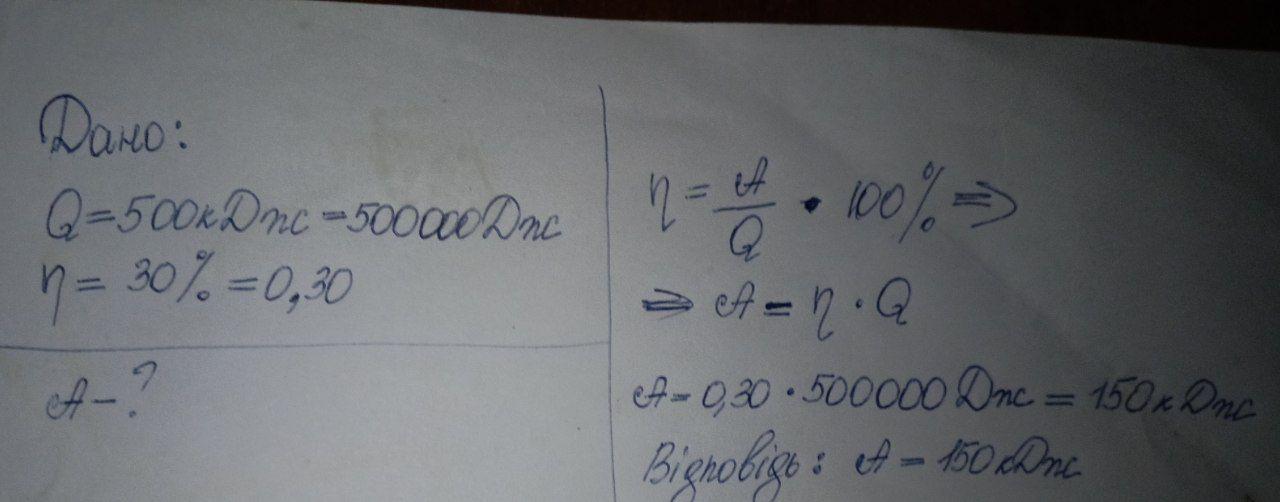 Дано:
Q = 500кДж = 500000Дж
η = 30% = 0,30
A - ?
η = A/Q · 100% ⇒
⇒ A = η · Q
A = 0,30 · 500000 Дж = 150кДж
Відповідь: A = 150кДж